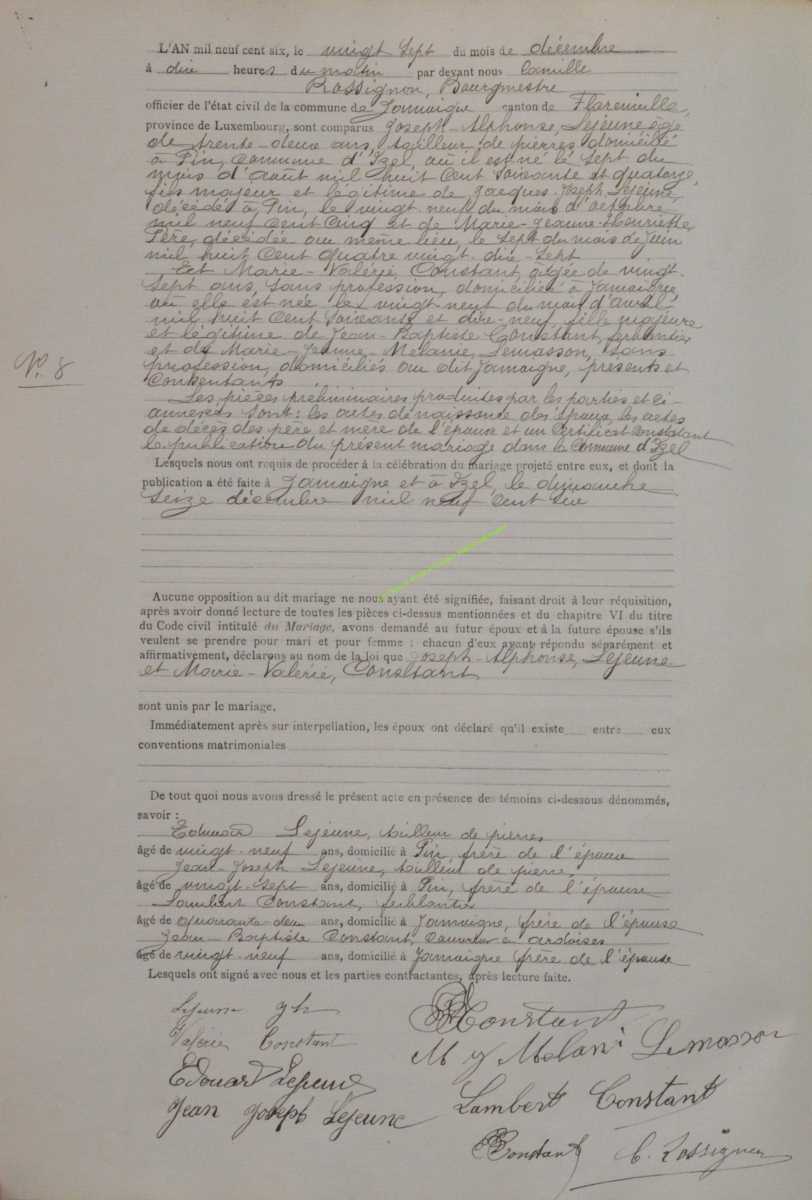 L'AN mil neuf cent six, le vingt sept du mois de décembre
à dix heures du matin par devant nous Camille
Rossignon, Bourgmestre
officier de l'état civil de la commune de Jamoigne canton de Florenville,
province de Luxembourg, sont comparus Joseph-Alphonse, Lejeune âgé
de trente-deux ans, tailleur de pierres domicilié
à Pin, commune d'Izel, où il est né le sept du
mois d'août mil huit cent soixante et quatorze
fils majeur et légitime de Jacques-Joseph Lejeune,
décédés à Pin, le vingt neuf du mois d'octobre
mil neuf cent cinq et de Marie-Jeanne-Henriette
décédée au même lieu, le sept du mois de juin
mil huit cent quatre vingt-dix-sept
Et Marie-Valérie, Constant, âgée de vingt
sept ans, sans profession, domiciliée à Jamoigne
où elle est née le vingt-neuf du mois d'avril
mil huit cent soixante et dix-neuf, fille majeure
et légitime de Jean-Baptiste Constant,
et de Marie-Jeanne-Mélanie, Lemasson, sans
profession, domiciliés au dit Jamoigne, présents et
consentants
N° 8
Les pièces préliminaires produites par les parties et ci-
annexées sont: les actes de naissance des époux, les actes
de décès des père et mère de l'époux et un certificat constatant
la publication du présent mariage dans la Commune d'Izel
Lesquels nous ont requis de procéder à la célébration du mariage projeté entre eux, et dont la
publication a été faite à Jamoigne et à Izel, le dimanche
seize décembre mil neuf cent six
Aucune opposition au dit mariage ne nous ayant été signifiée, faisant droit à leur réquisition,
après avoir donné lecture de toutes les pièces ci-dessus mentionnées et du chapitre VI du titre
du Code civil intitulé du Mariage, avons demandé au futur époux et à la future épouse s'ils
veulent se prendre pour mari et pour femme : chacun d'eux ayant répondu séparément et
affirmativement, déclarons au nom de la loi que Joseph-Alphonse, Lejeune
et Marie-Valérie, Constant
sont unis par le mariage.
Immédiatement après sur interpellation, les époux ont déclaré qu'il existe entre eux
conventions matrimoniales
De tout quoi nous avons dressé le présent acte en présence des témoins ci-dessous dénommés,
savoir :
Edouard Lejeune, tailleur de pierres,
âgé de vingt-neuf ans, domicilié à Pin, frère de l'époux
Jean-Joseph Lejeune, tailleur de pierre,
âgé de vingt-sept ans, domicilié à Pin, frère de l'épouse
Lambert Constant, ferblantier
âgé de quarante-deux ans, domicilié à Jamoigne, frère de l'épouse
Jean-Baptiste Constant, couvreur en ardoises
âgé de vingt-neuf ans, domicilié à Jamoigne frère de l'épouse
Lesquels ont signé avec nous et les parties contractantes, après lecture faite.
Lejeune Constant
Valérie Constant M J Melani Lemasson
Edouard Lejeune Lambert Constant
Jean Joseph Lejeune Constant C. Rossignon